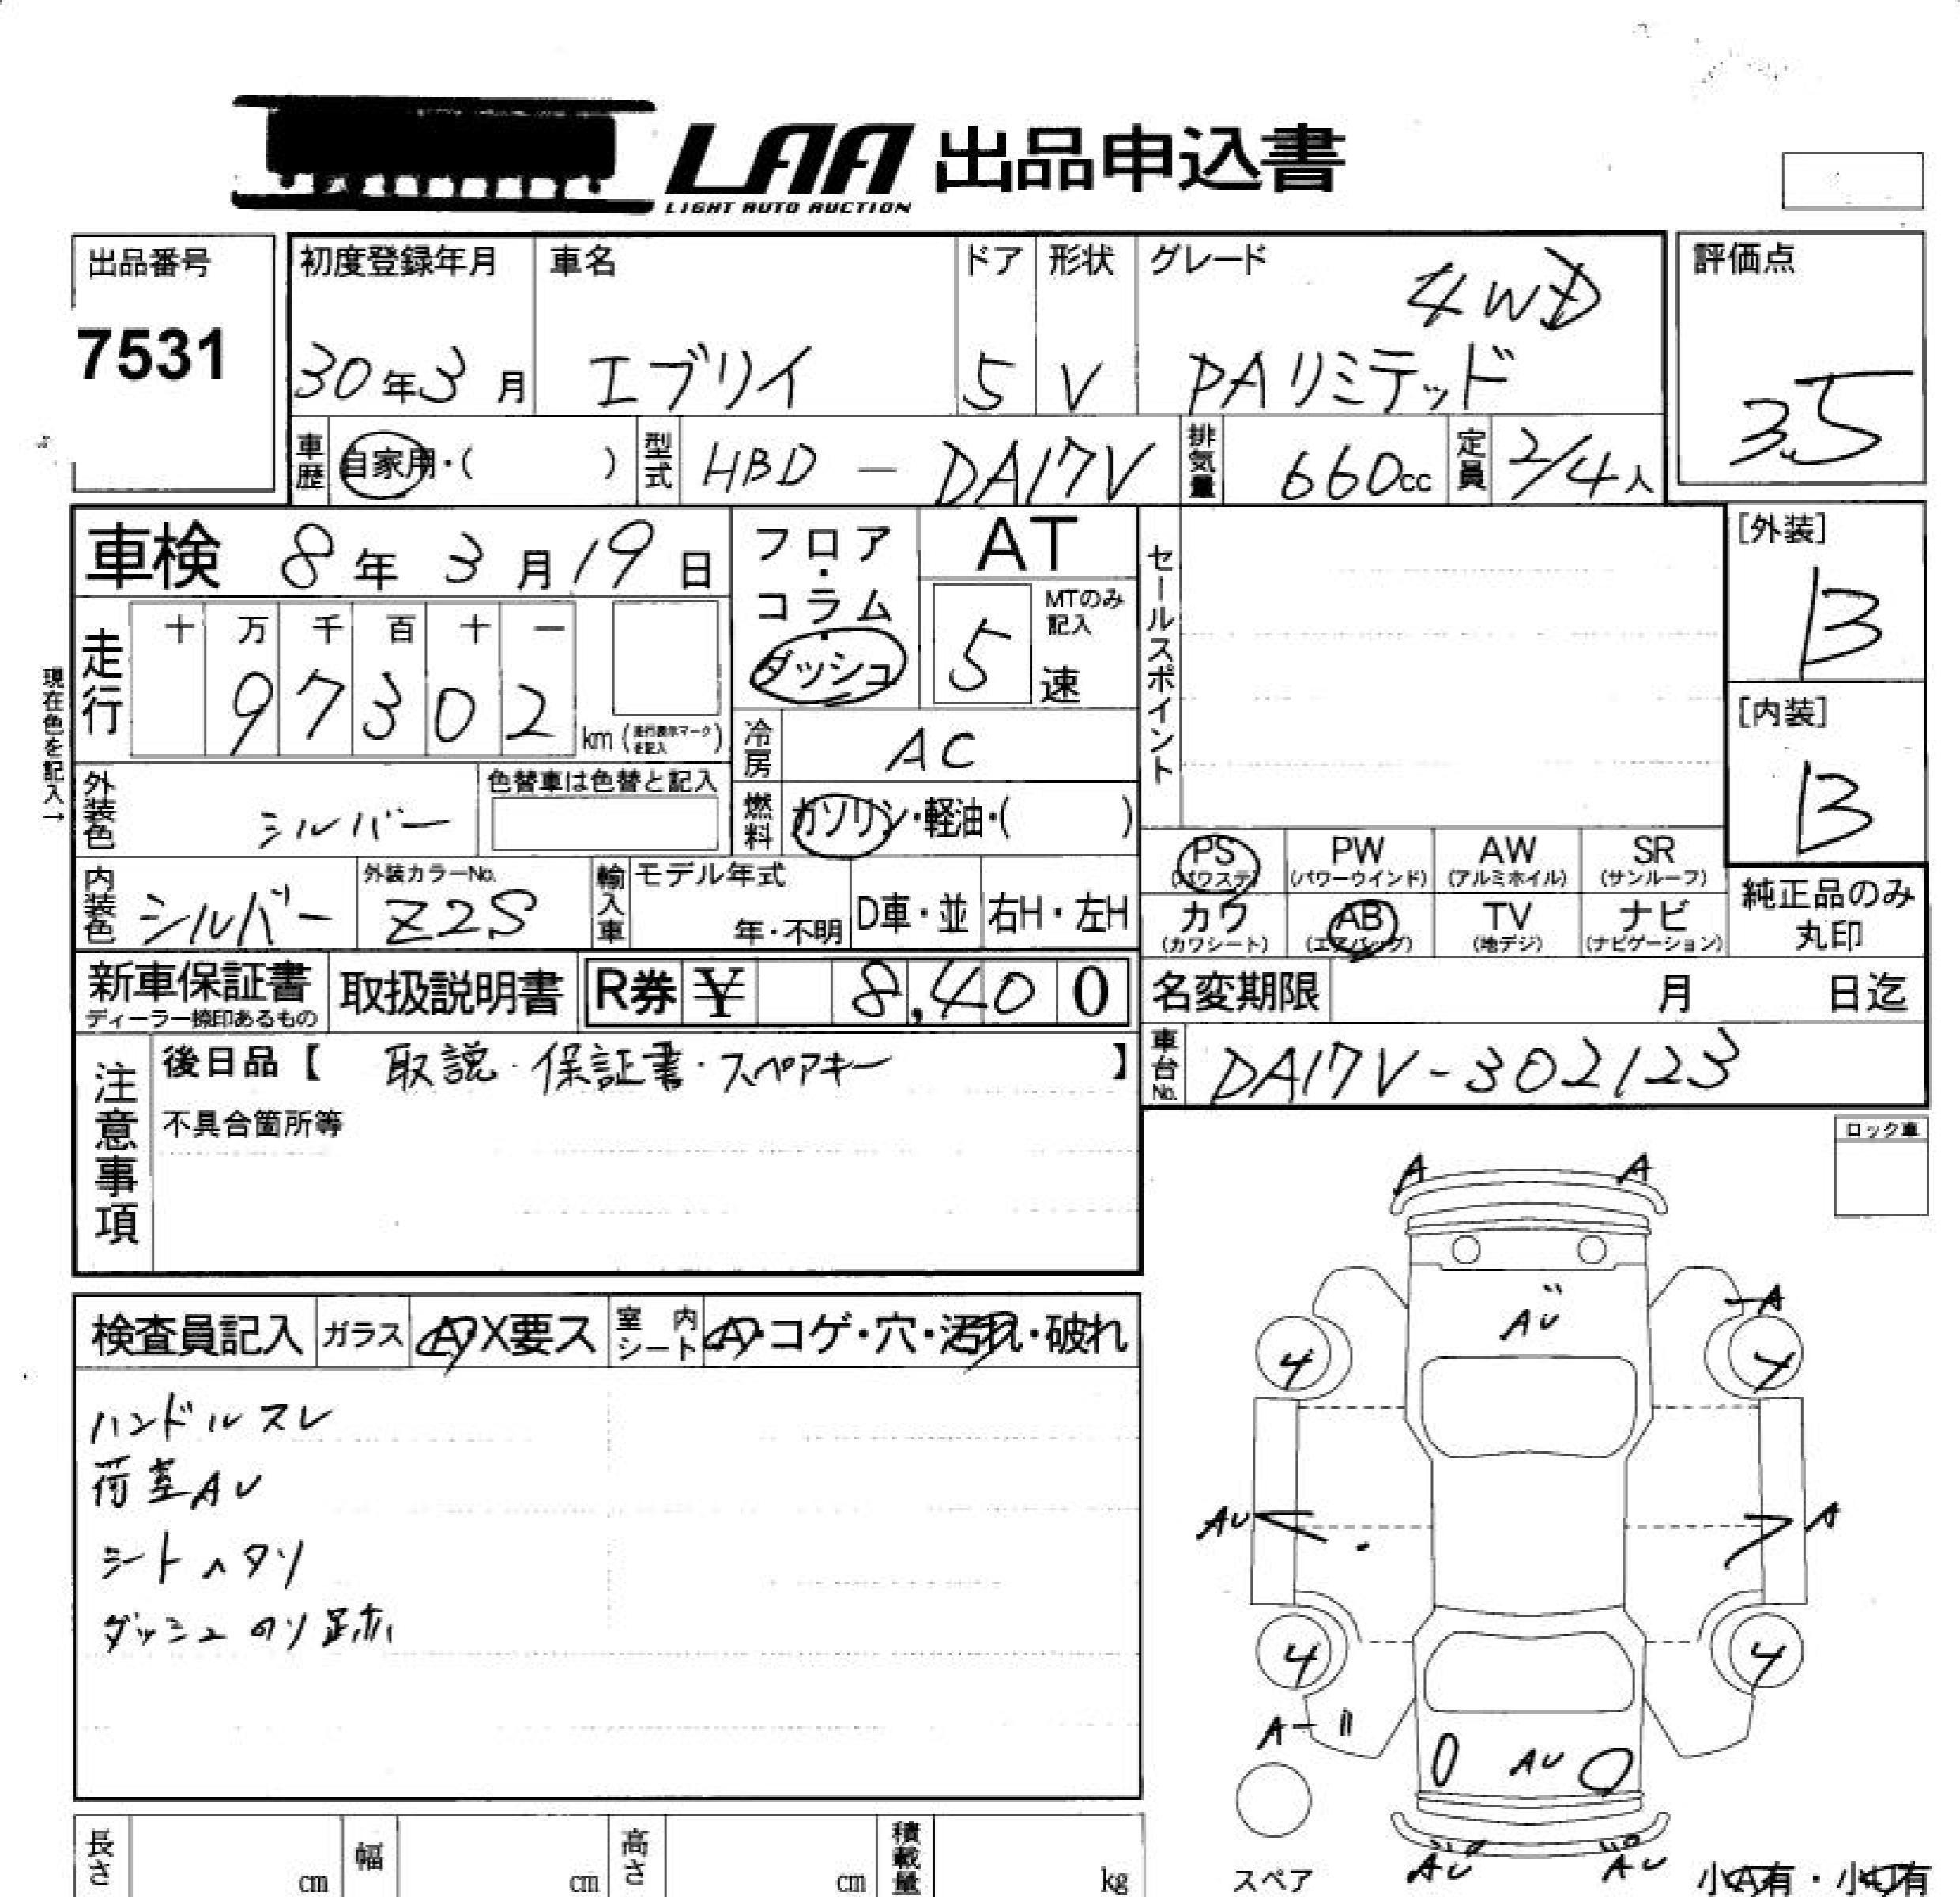 LAA 出品申込書
LIGHT AUTO AUCTION
出品番号
7531
初度登録年月
30年3月
車名
エブリイ
ドア
5
形状
V
グレード
4WD
PAリミテッド
評価点
3.5
車歴
自家用・( )
型式
HBD - DA17V
排気量
660cc
定員
2/4人
車検 8年3月19日
フロア・コラム・ダッシュ
AT
5速
MTのみ記入
セールスポイント
[外装]
B
[内装]
B
現在色を記入→
走行
十 万 千 百 十 一
97302
km(走行表示マークを記入)
冷房
AC
外装色
シルバー
色替車は色替と記入
燃料
ガソリン・軽油・( )
PS (パワステ)
PW (パワーウインド)
AW (アルミホイル)
SR (サンルーフ)
カワ (カワシート)
AB (エアバッグ)
TV (地デジ)
ナビ (ナビゲーション)
純正品のみ丸印
内装色
シルバー
外装カラーNo.
Z2S
輸入車
モデル年式
年・不明
D車・並
右H・左H
新車保証書
ディーラー捺印あるもの
取扱説明書
R券 ¥ 8,400
名変期限 月 日迄
注意事項
後日品【 取説・保証書・スペアキー 】
不具合箇所等
車台No.
DA17V-302123
ロック車
検査員記入
ガラス
A・X要ス
室内シート
A・コゲ・穴・汚れ・破れ
ハンドルスレ
荷室AU
シートヘタリ
ダッシュのり跡
A A
AU
A
4 4
AU A
4 4
A
AU
AU AU
スペア
小A有・小U有
長さ cm
幅 cm
高さ cm
積載量 kg